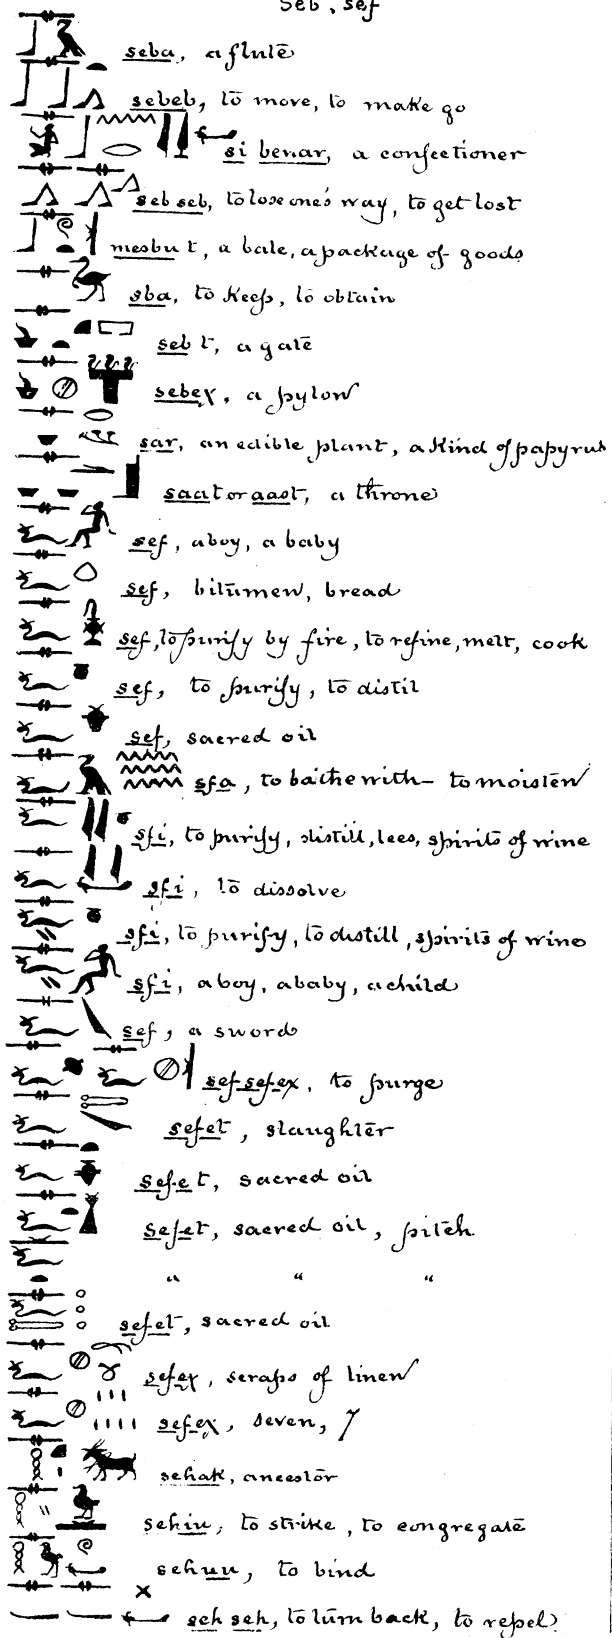 seb, sef
seba, a flute
sebeb, to move, to make go
si benar, a confectioner
seb seb, to lose one's way, to get lost
mesbu t, a bale, a package of goods
sba, to keep, to obtain
seb t, a gate
sebeχ, a pylon
sar, an edible plant, a kind of papyrus
saat or aast, a throne
sef, a boy, a baby
sef, bitumen, bread
sef, to purify by fire, to refine, melt, cook
sef, to purify, to distil
sef, sacred oil
sfa, to bathe with - to moisten
sfi, to purify, distill, lees, spirits of wine
sfi, to dissolve
sfi, to purify, to distill, spirits of wine
sfi, a boy, a baby, a child
sef, a sword
sefsefeχ, to purge
sefet, slaughter
sefet, sacred oil
sefet, sacred oil, pitch
" " "
sefet, sacred oil
sefeχ, scraps of linen
sefeχ, seven, 7
sehak, ancestor
sehiu, to strike, to congregate
sehuu, to bind
seh seh, to turn back, to repel